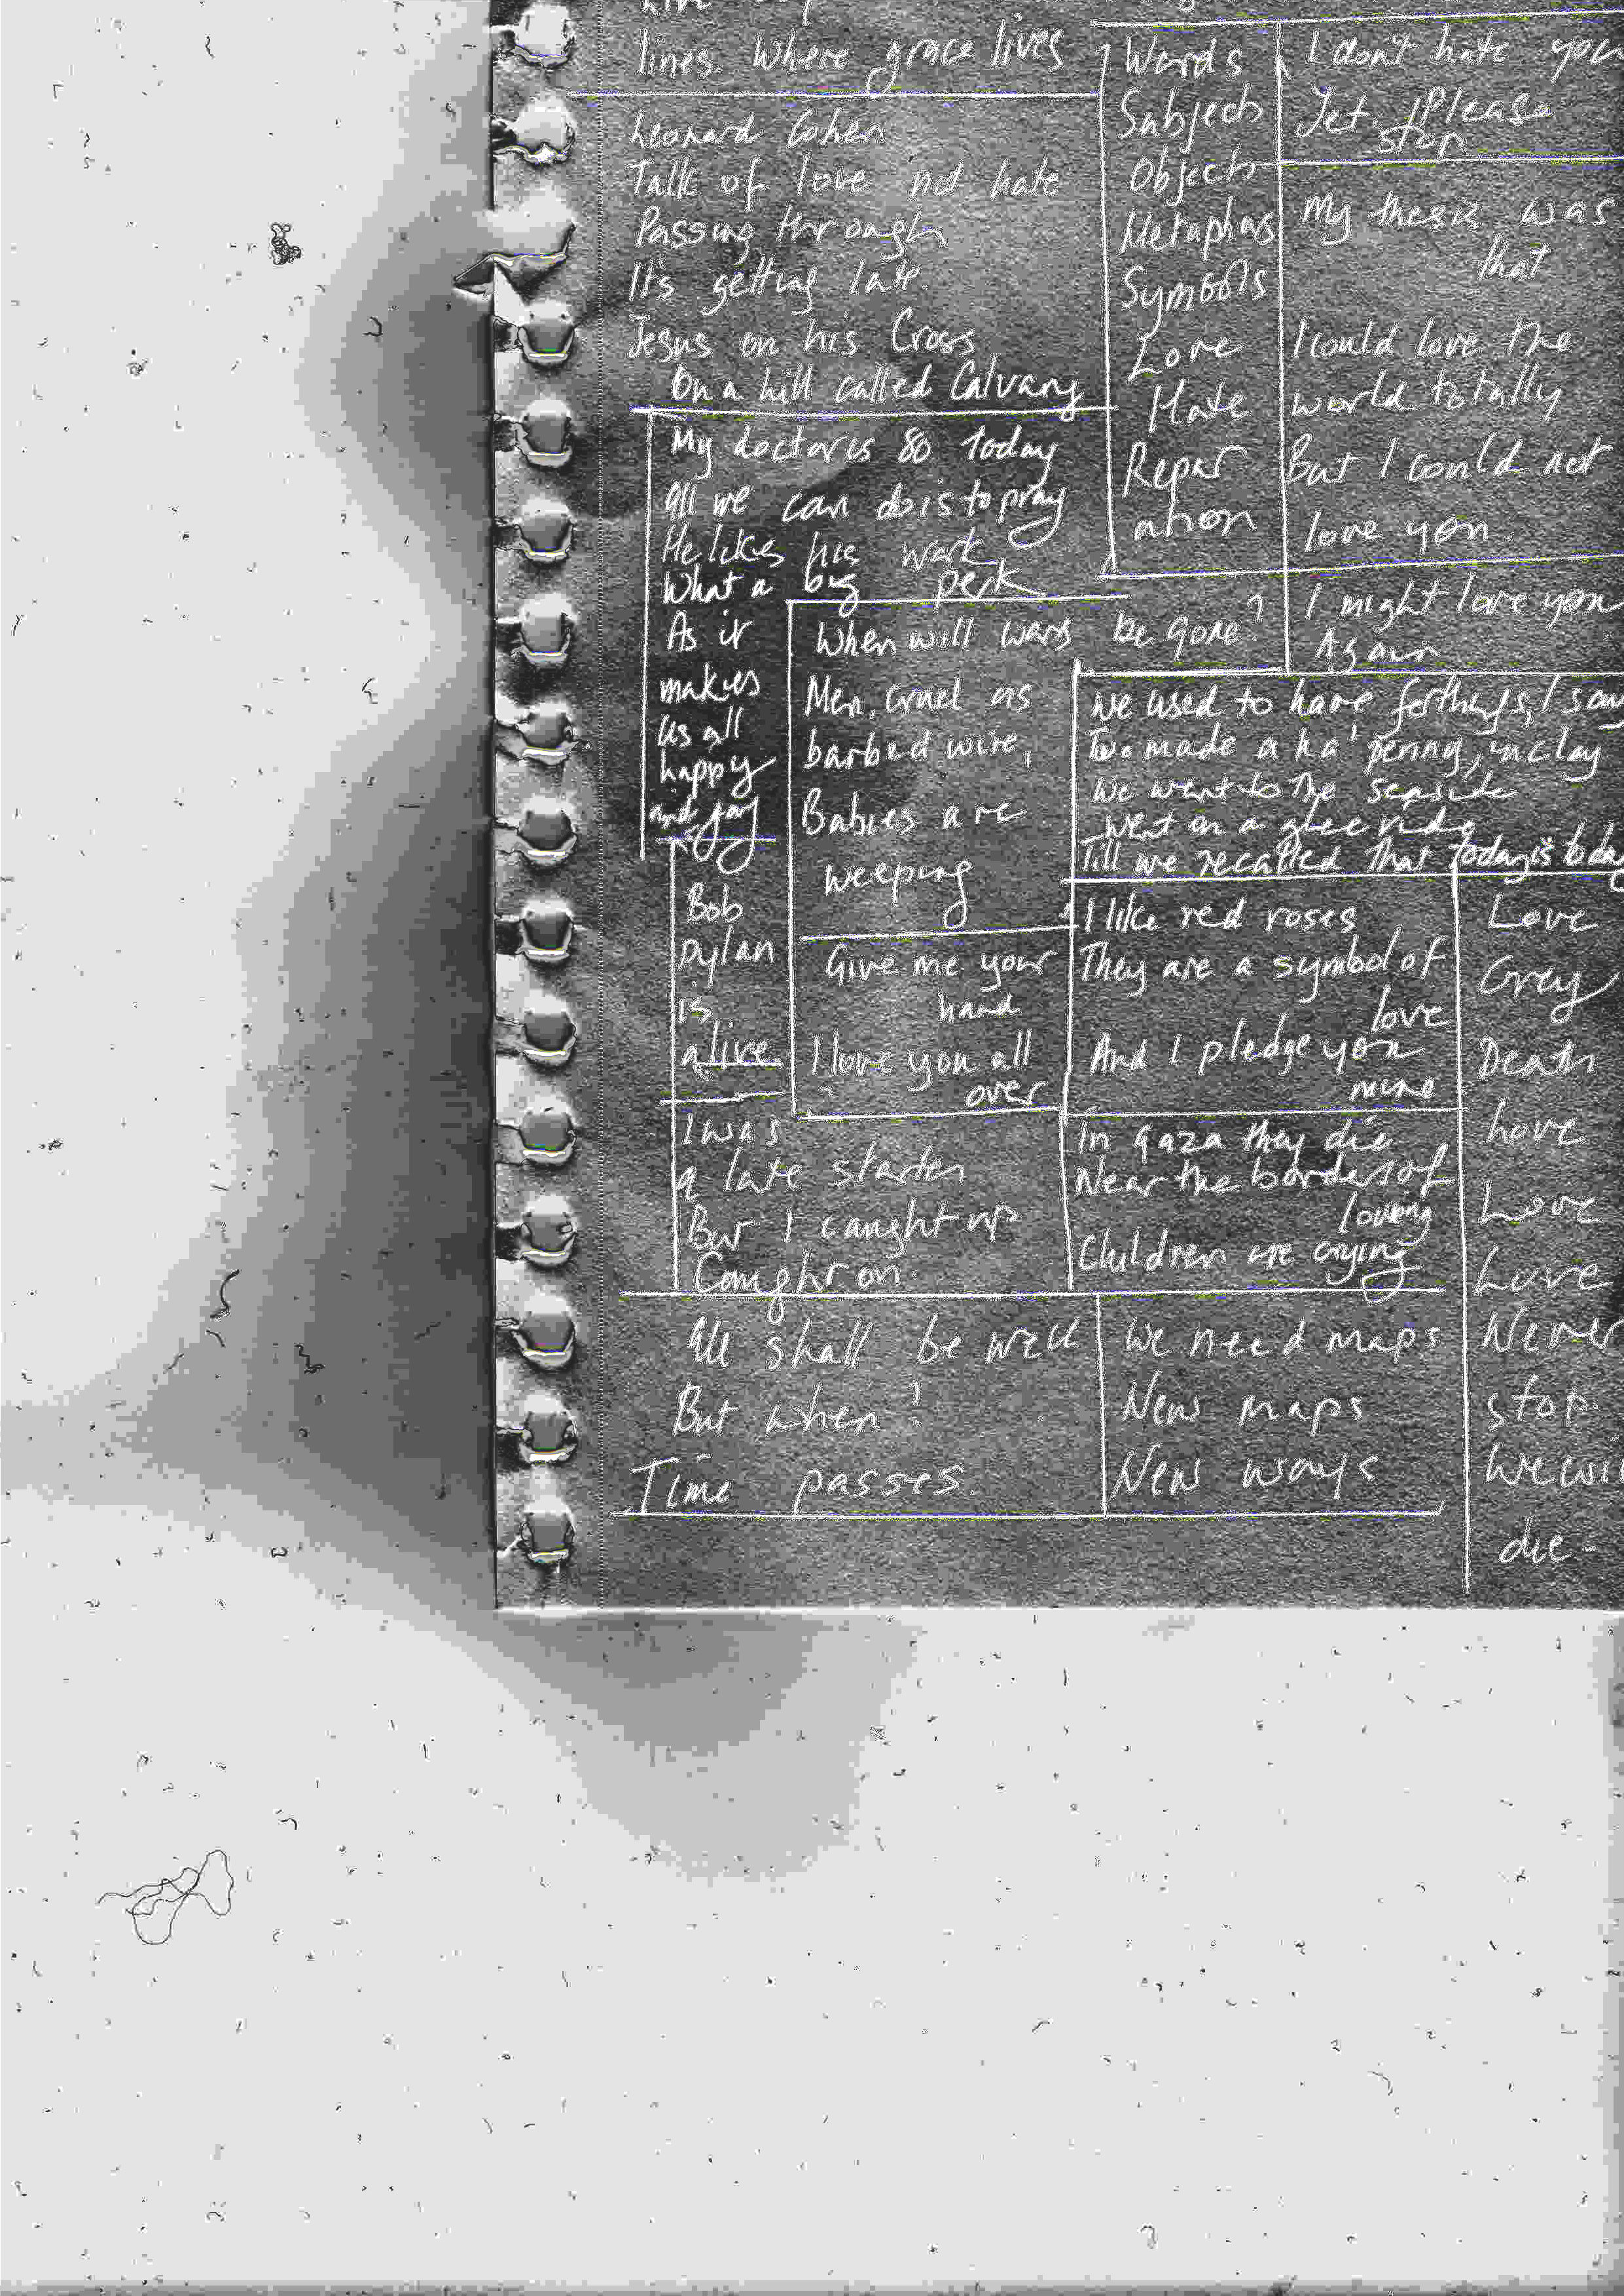 lines. Where grace lives
Leonard Cohen
Talk of love not hate
Passing through
It's getting late.
Jesus on his Cross
On a hill called Calvary
My doctor is 80 today
All we can do is to pray
He likes his work
What a big perk
As it
makes
us all
happy
and gay
Bob
Dylan
is
alive
I was
a late starter
But I caught up
Caught on.
All shall be well
But when?
Time passes.
When will wars be gone?
Men, cruel as
barbed wire,
Babies are
weeping
Give me your
hand
I love you all
over
Words
Subjects
Objects
Metaphors
Symbols
Love
Hate
Repar
ation
I don't hate you
Yet. Please
stop
My thesis was
that
I could love the
world totally
But I could not
love you.
I might love you
Again
We used to have farthings, I say
Two made a ha'penny, in clay
We went to the seaside
Went on a glee ride
Till we recalled that today is today
I like red roses
They are a symbol of
love
And I pledge you
mine
In Gaza they die
Near the borders of
loving
Children are crying
We need maps
New maps
New ways
Love
Grey
Death
Love
Love
Love
Never
stop
We wi
die.